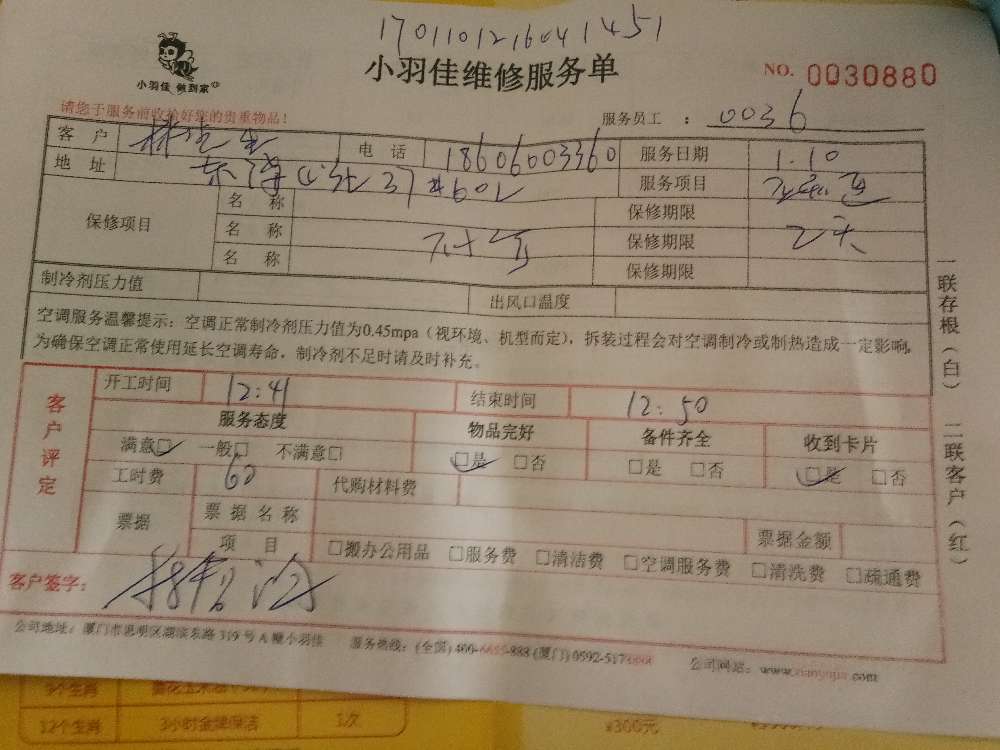 1701101216041451
小羽佳 做到家
小羽佳维修服务单
NO. 0030880
请您于服务前收捡好您的贵重物品！
服务员工 ： 0036
客 户 电 话 18606003360 服务日期 1.10
地 址 37#602 服务项目
保修项目 名 称 保修期限
名 称 保修期限 2天
名 称 保修期限
制冷剂压力值 出风口温度
空调服务温馨提示：空调正常制冷剂压力值为0.45mpa（视环境、机型而定），拆装过程会对空调制冷或制热造成一定影响，
为确保空调正常使用延长空调寿命，制冷剂不足时请及时补充。
客户评定
开工时间 12:41 结束时间 12:50
服务态度 物品完好 备件齐全 收到卡片
满意☑ 一般□ 不满意□ ☑是 □否 □是 □否 ☑是 □否
工时费 60 代购材料费
票据 票 据 名 称 票据金额
项 目 □搬办公用品 □服务费 □清洁费 □空调服务费 □清洗费 □疏通费
客户签字：
公司地址：厦门市思明区湖滨东路 319 号 A 幢小羽佳 服务热线：(全国) 400-6615-888 (厦门) 0592-517 公司网站：www.xiaoyujia.com
一联存根（白） 二联客户（红）
12个生肖 3小时金牌保洁 1次 ¥300元